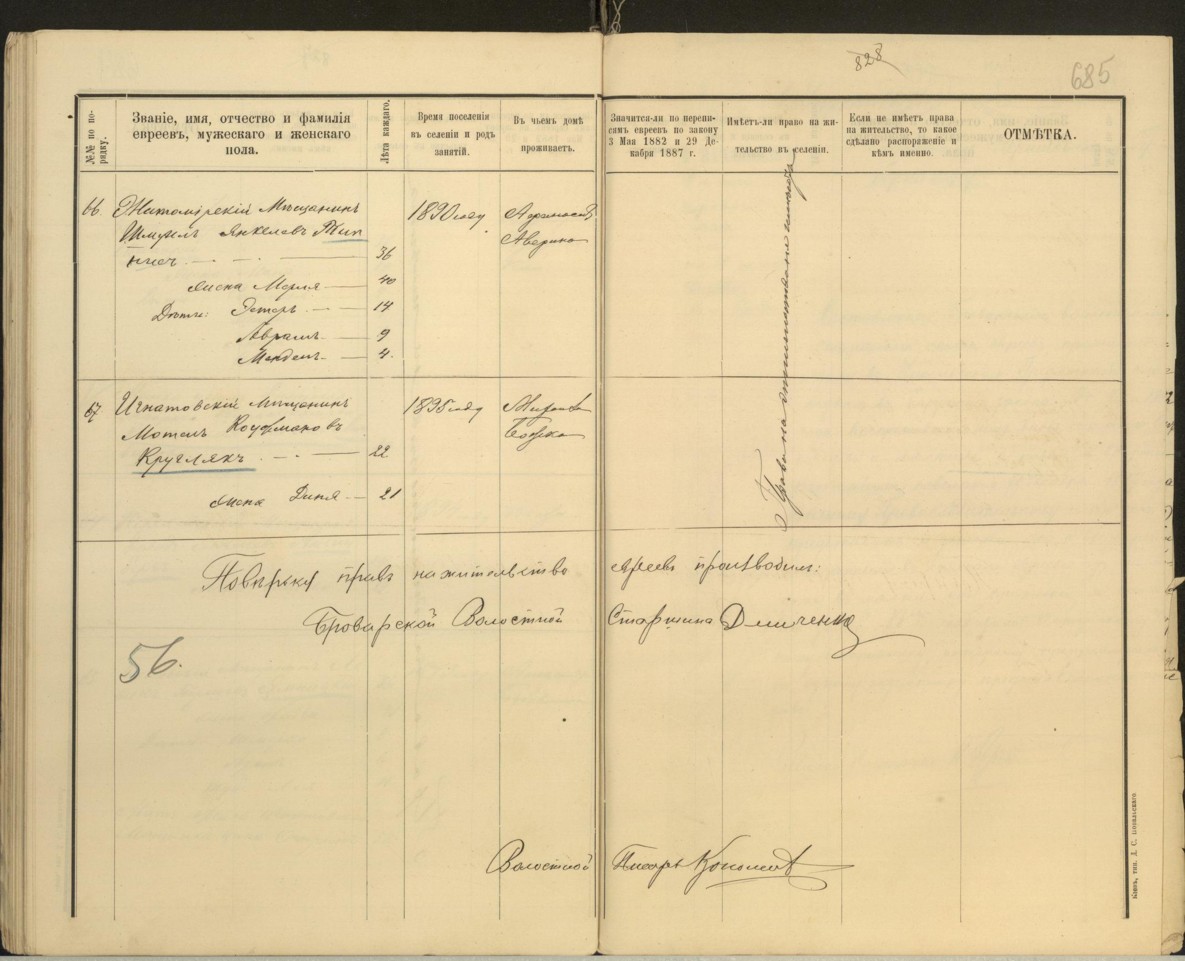 828
685
№№ по по-
рядку.
Званіе, имя, отчество и фамилія
евреевъ, мужескаго и женскаго
пола.
Лѣта каждаго.
Время поселенія
въ селеніи и родъ
занятій.
Въ чьемъ домѣ
проживаетъ.
Значится-ли по перепи-
сямъ евреевъ по закону
3 Мая 1882 и 29 Де-
кабря 1887 г.
Имѣетъ-ли право на жи-
тельство въ селеніи.
Если не имѣетъ права
на жительство, то какое
сдѣлано распоряженіе и
кѣмъ именно.
ОТМѢТКА.
66 Житомірскій Мѣщанинъ 1890 году
Шмуль Янкелевъ
36
жена 40
Дѣти: Эстеръ 14
Аврамъ 9
Мендель 4.
67 Игнатовскій Мѣщанинъ 1895 году
Мотель
Круглякъ 22
жена 21
Права на жительство
Повѣрку правъ на жительство евреевъ производилъ:
Броварской Волостной Старшина
56.
Волостной Писарь
Кіевъ, тип.